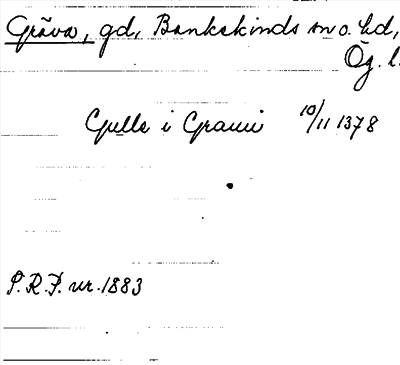 Gräva, gd, Bankekinds sn o. hd,
Ög. l.
Gulle i Graui 10/11 1378
S.R.P. nr. 1883